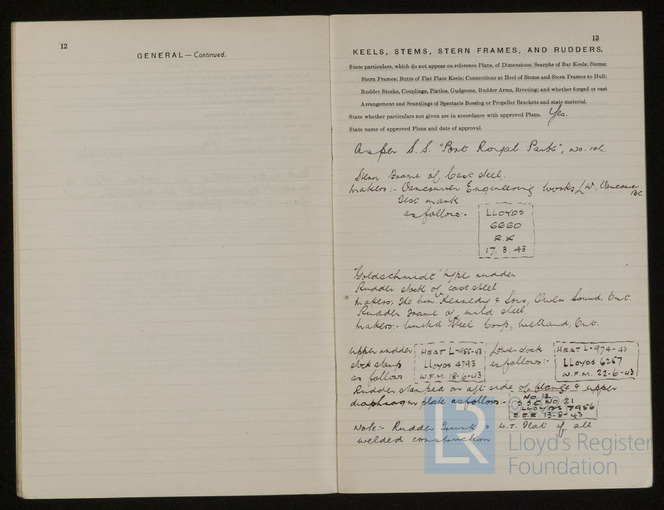 12
GENERAL — Continued.
13
KEELS, STEMS, STERN FRAMES, AND RUDDERS.
State particulars, which do not appear on reference Plans, of Dimensions; Scarphs of Bar Keels; Stems;
Stern Frames; Butts of Flat Plate Keels; Connections at Heel of Stems and Stern Frames to Hull;
Rudder Stocks, Couplings, Pintles, Gudgeons, Rudder Arms, Riveting; and whether forged or cast
Arrangement and Scantlings of Spectacle Bossing or Propeller Brackets and state material.
State whether particulars not given are in accordance with approved Plans. Yes.
State name of approved Plans and date of approval
As per S.S. "Port Royal Park", No. 102.
Stern Frame of Cast Steel.
Makers:- Vancouver Engineering Works Ltd. Vancouver BC
Test mark
as follows:-
LLOYDS
6660
R.K
17.3.43
"Goldschmidt" type rudder
Rudder stock of cast steel
Makers, The Wm. Kennedy & Sons, Owen Sound, Ont.
Rudder Frame of mild steel
Makers:- United Steel Corp, Welland, Ont.
Upper rudder
stock stamp
as follows
HEAT L-955-43
LLOYDS 4793
W.F.M. 18-6-43
Lower stock
as follows:-
HEAT L-974-43
LLOYDS 6257
W.F.M. 22-6-43
Rudder stamped on aft side of flange & upper
diaphragm plate as follows:-
NO. 12
NO 21
LLOYDS 7956
13-8-43
Note:- Rudder Trunk & W.T. Flat of all
welded construction
LR
Lloyd's Register
Foundation